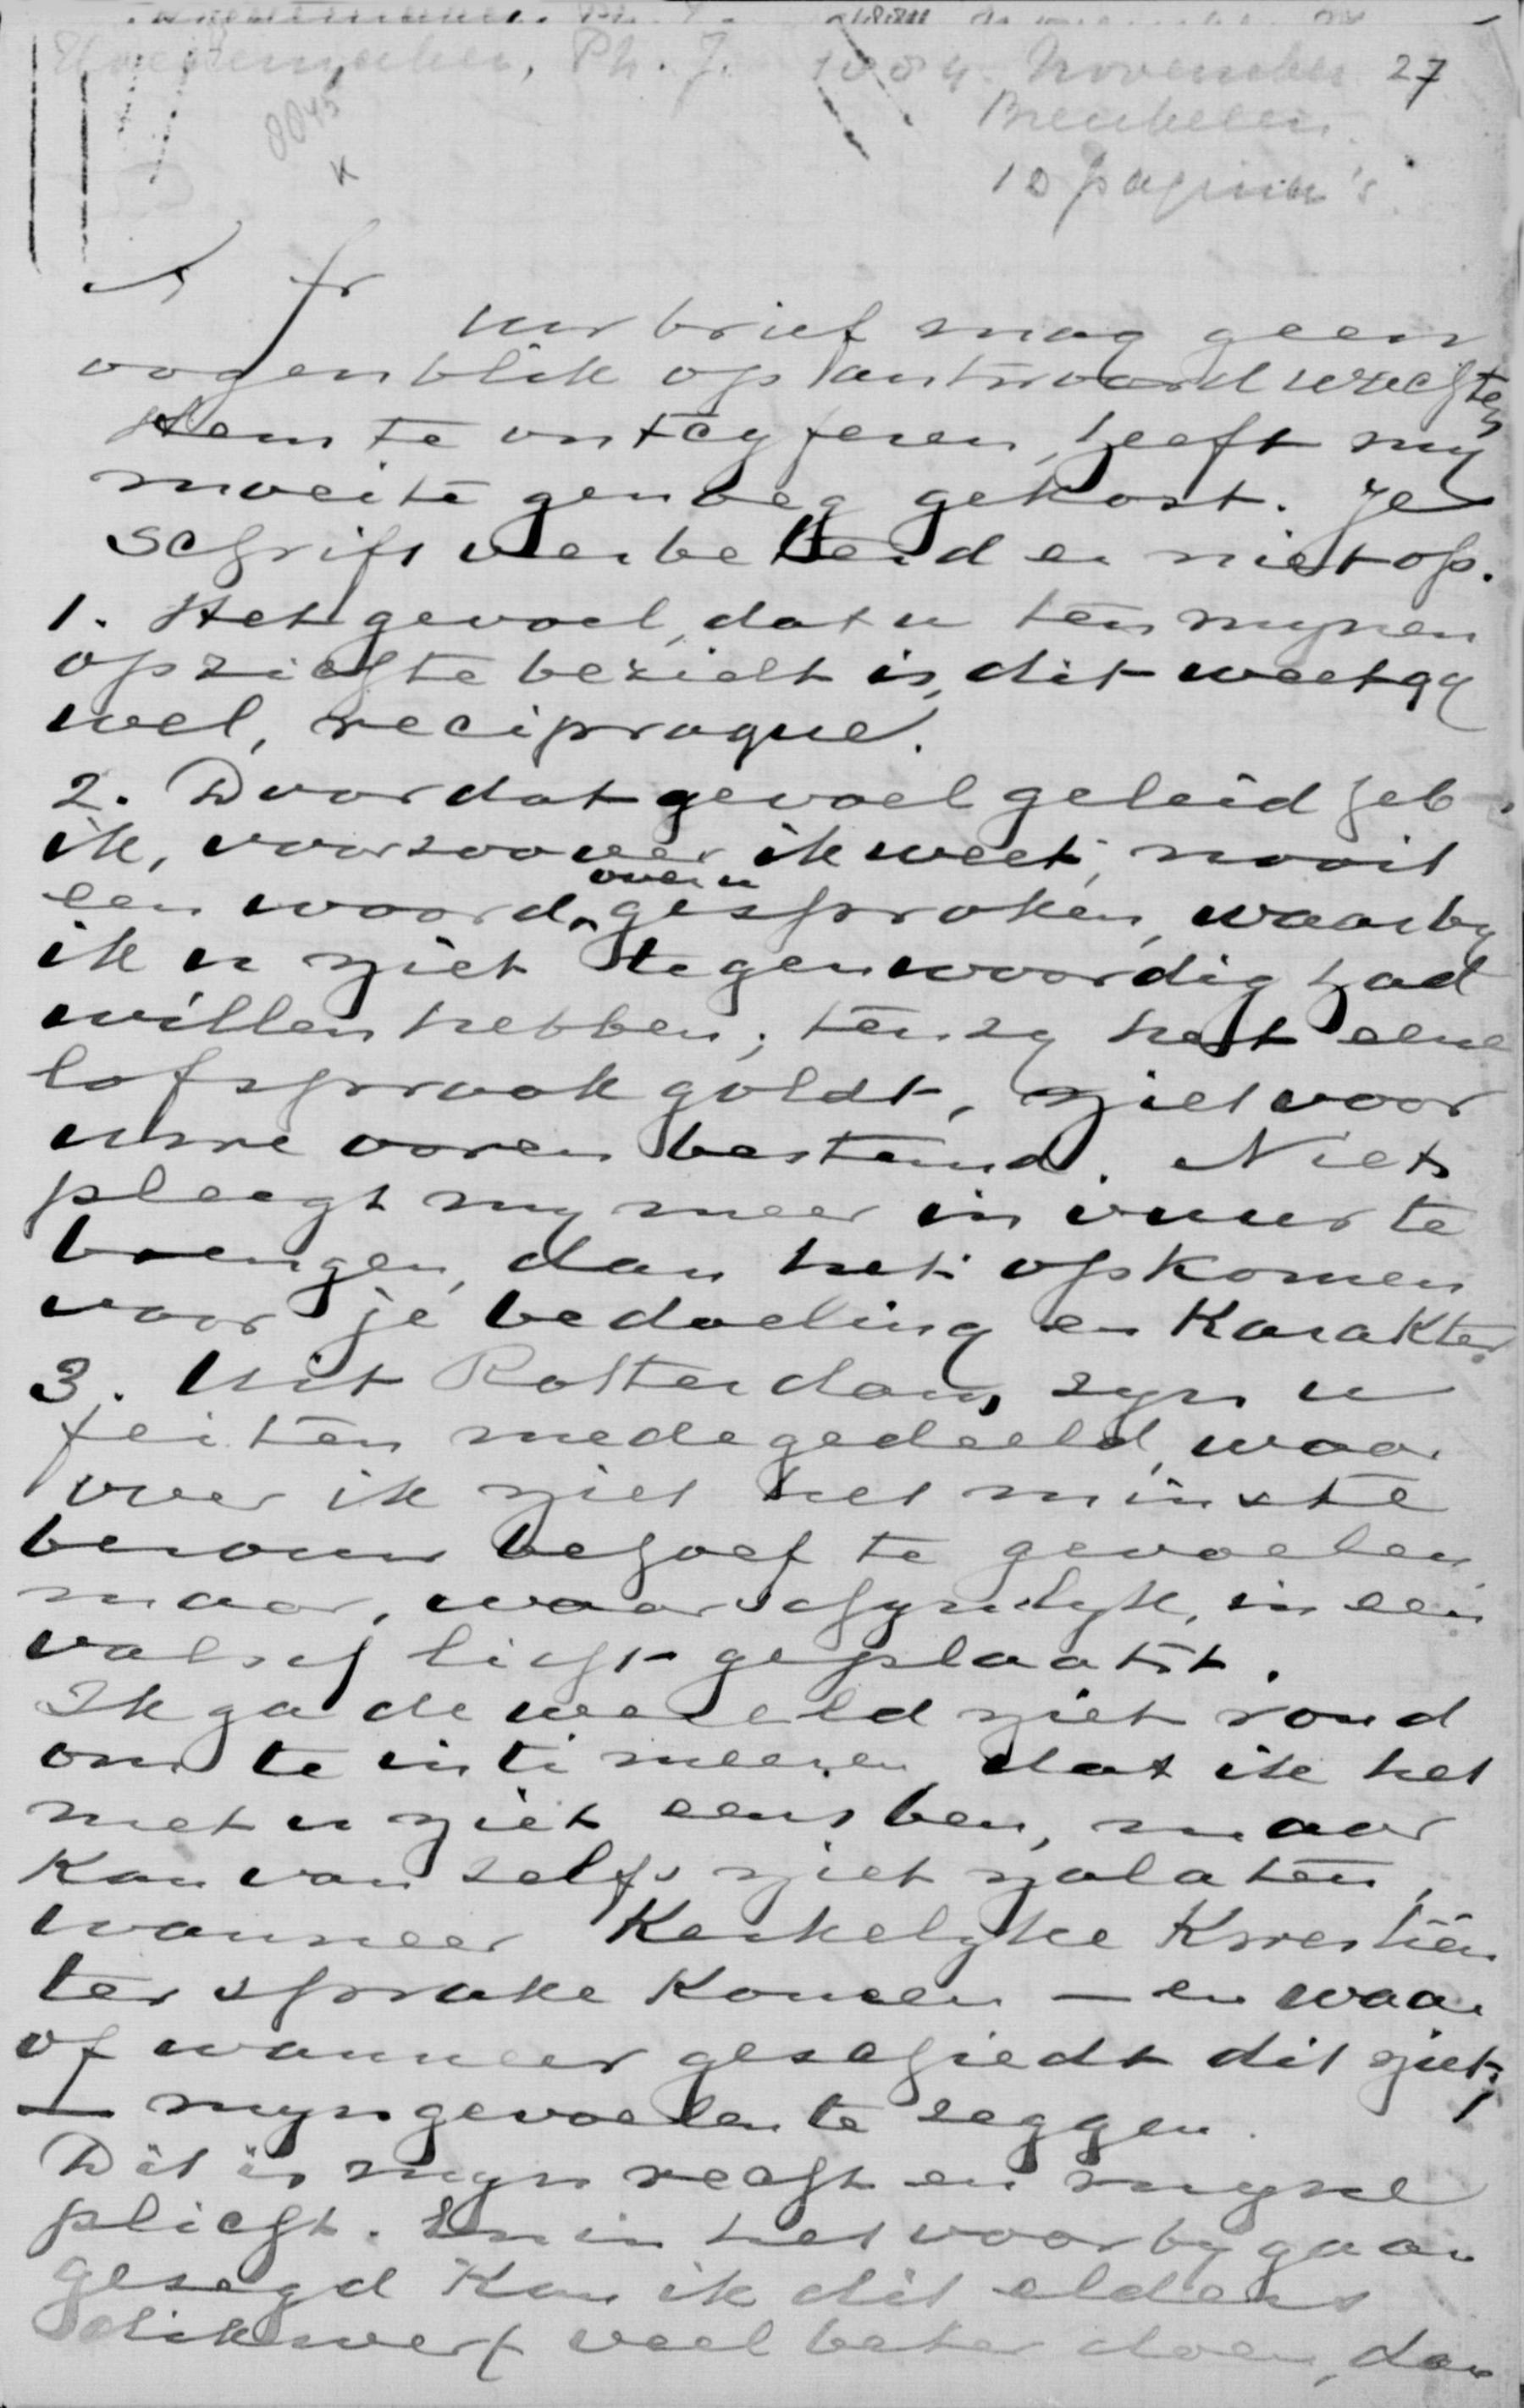 Hoedemaker, Ph. J. 1884 November 27
Breukelen
10 pagina's
0045
K
A fr
Uw brief mag geen
oogenblik op antwoord wachten
Hem te ontcyferen, heeft my
moeite genoeg gekost. Je
schrift verbeterd er niet op.
1. Het gevoel, dat u ten mynen
opzichte bezielt is, dit weet gy
wel, reciproque.
2. Door dat gevoel geleid heb
ik, voorzoover ik weet, nooit
een woord over u gesproken, waarby
ik u niet tegenwoordig had
willen hebben; tenzy het eene
lofspraak goldt, niet voor
uwe ooren bestemd. Niets
pleegt my meer in vuur te
brengen, dan het opkomen
voor je bedoeling en Karakter.
3. Uit Rotterdam zyn u
feiten medegedeeld, waar
over ik niet het minste
berouw behoef te gevoelen
maar, waarschynlyk, in een
valsch licht geplaatst.
Ik ga de wereld niet rond
om te intimeeren dat ik het
met u niet eens ben, maar
Kan van zelfs niet nalaten,
wanneer Kerkelyke Kwestiën
ter sprake Komen — en waar
of wanneer geschiedt dit niet,
— myn gevoelen te zeggen.
Dit is myn recht en myne
plicht. En in het voorbygaan
gezegd Kan ik dit elders
dikwerf veel beter doen, dan